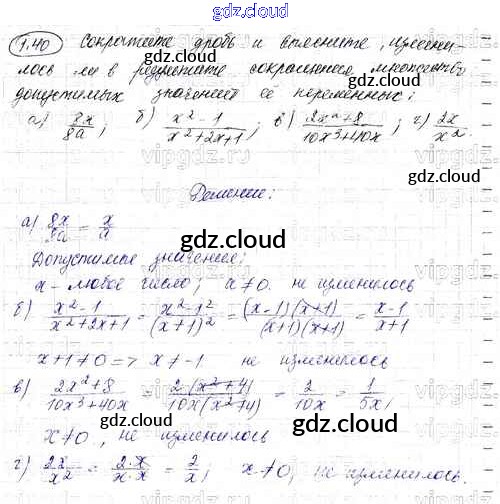 gdz.cloud
1.40 Сократите дробь и выясните, измени-
лось ли в результате сокращения множество
допустимых значений её переменных:
а) 8x/8a; б) x²-1/x²+2x+1; в) 2x²+8/10x³+40x; г) 2x/x².
gdz.cloud
Решение:
а) 8x/8a = x/a
gdz.cloud
Допустимые значения:
x - любое число; a≠0. не изменилось
б) x²-1/x²+2x+1 = x²-1²/(x+1)² = (x-1)(x+1)/(x+1)(x+1) = x-1/x+1
x+1≠0 => x≠-1 не изменилось
в) 2x²+8/10x³+40x = 2(x²+4)/10x(x²+4) = 2/10x = 1/5x;
x≠0, не изменилось
gdz.cloud
г) 2x/x² = 2·x/x·x = 2/x; x≠0, не изменилось.
gdz.cloud